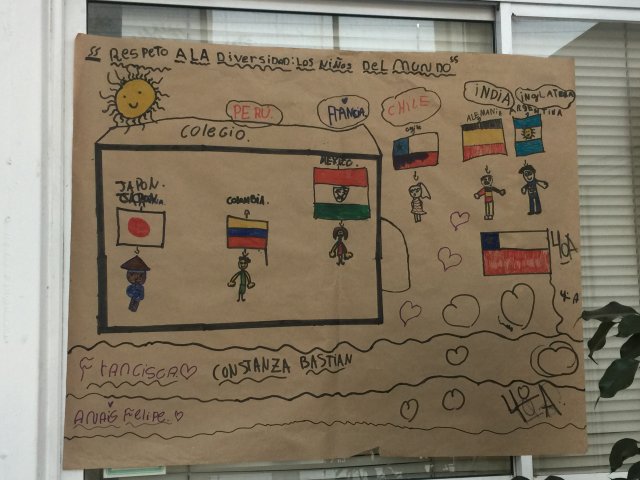 " RESPETO A LA DiVERSIDAD: LOS NIÑOS DEL MUNDO"
PERÚ.
FRANCIA.
CHILE
iNDiA
iNGLATERRA
COLEGIO.
ALEMANIA
ARGENTINA
MEXICO.
JAPON.
COLOMBIA.
4ºA
4º A
FRANCiSCA
CONSTANZA BASTIAN
ANAiS FELiPE
4ºA